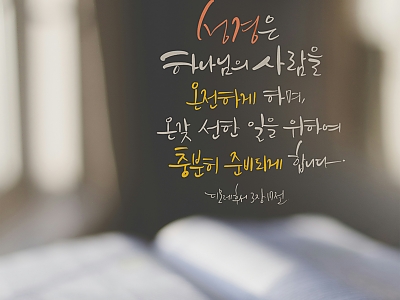 성경은
하나님의 사람을
온전하게 하며,
온갖 선한 일을 위하여
충분히 준비되게 합니다.
디모데후서 3장 17절